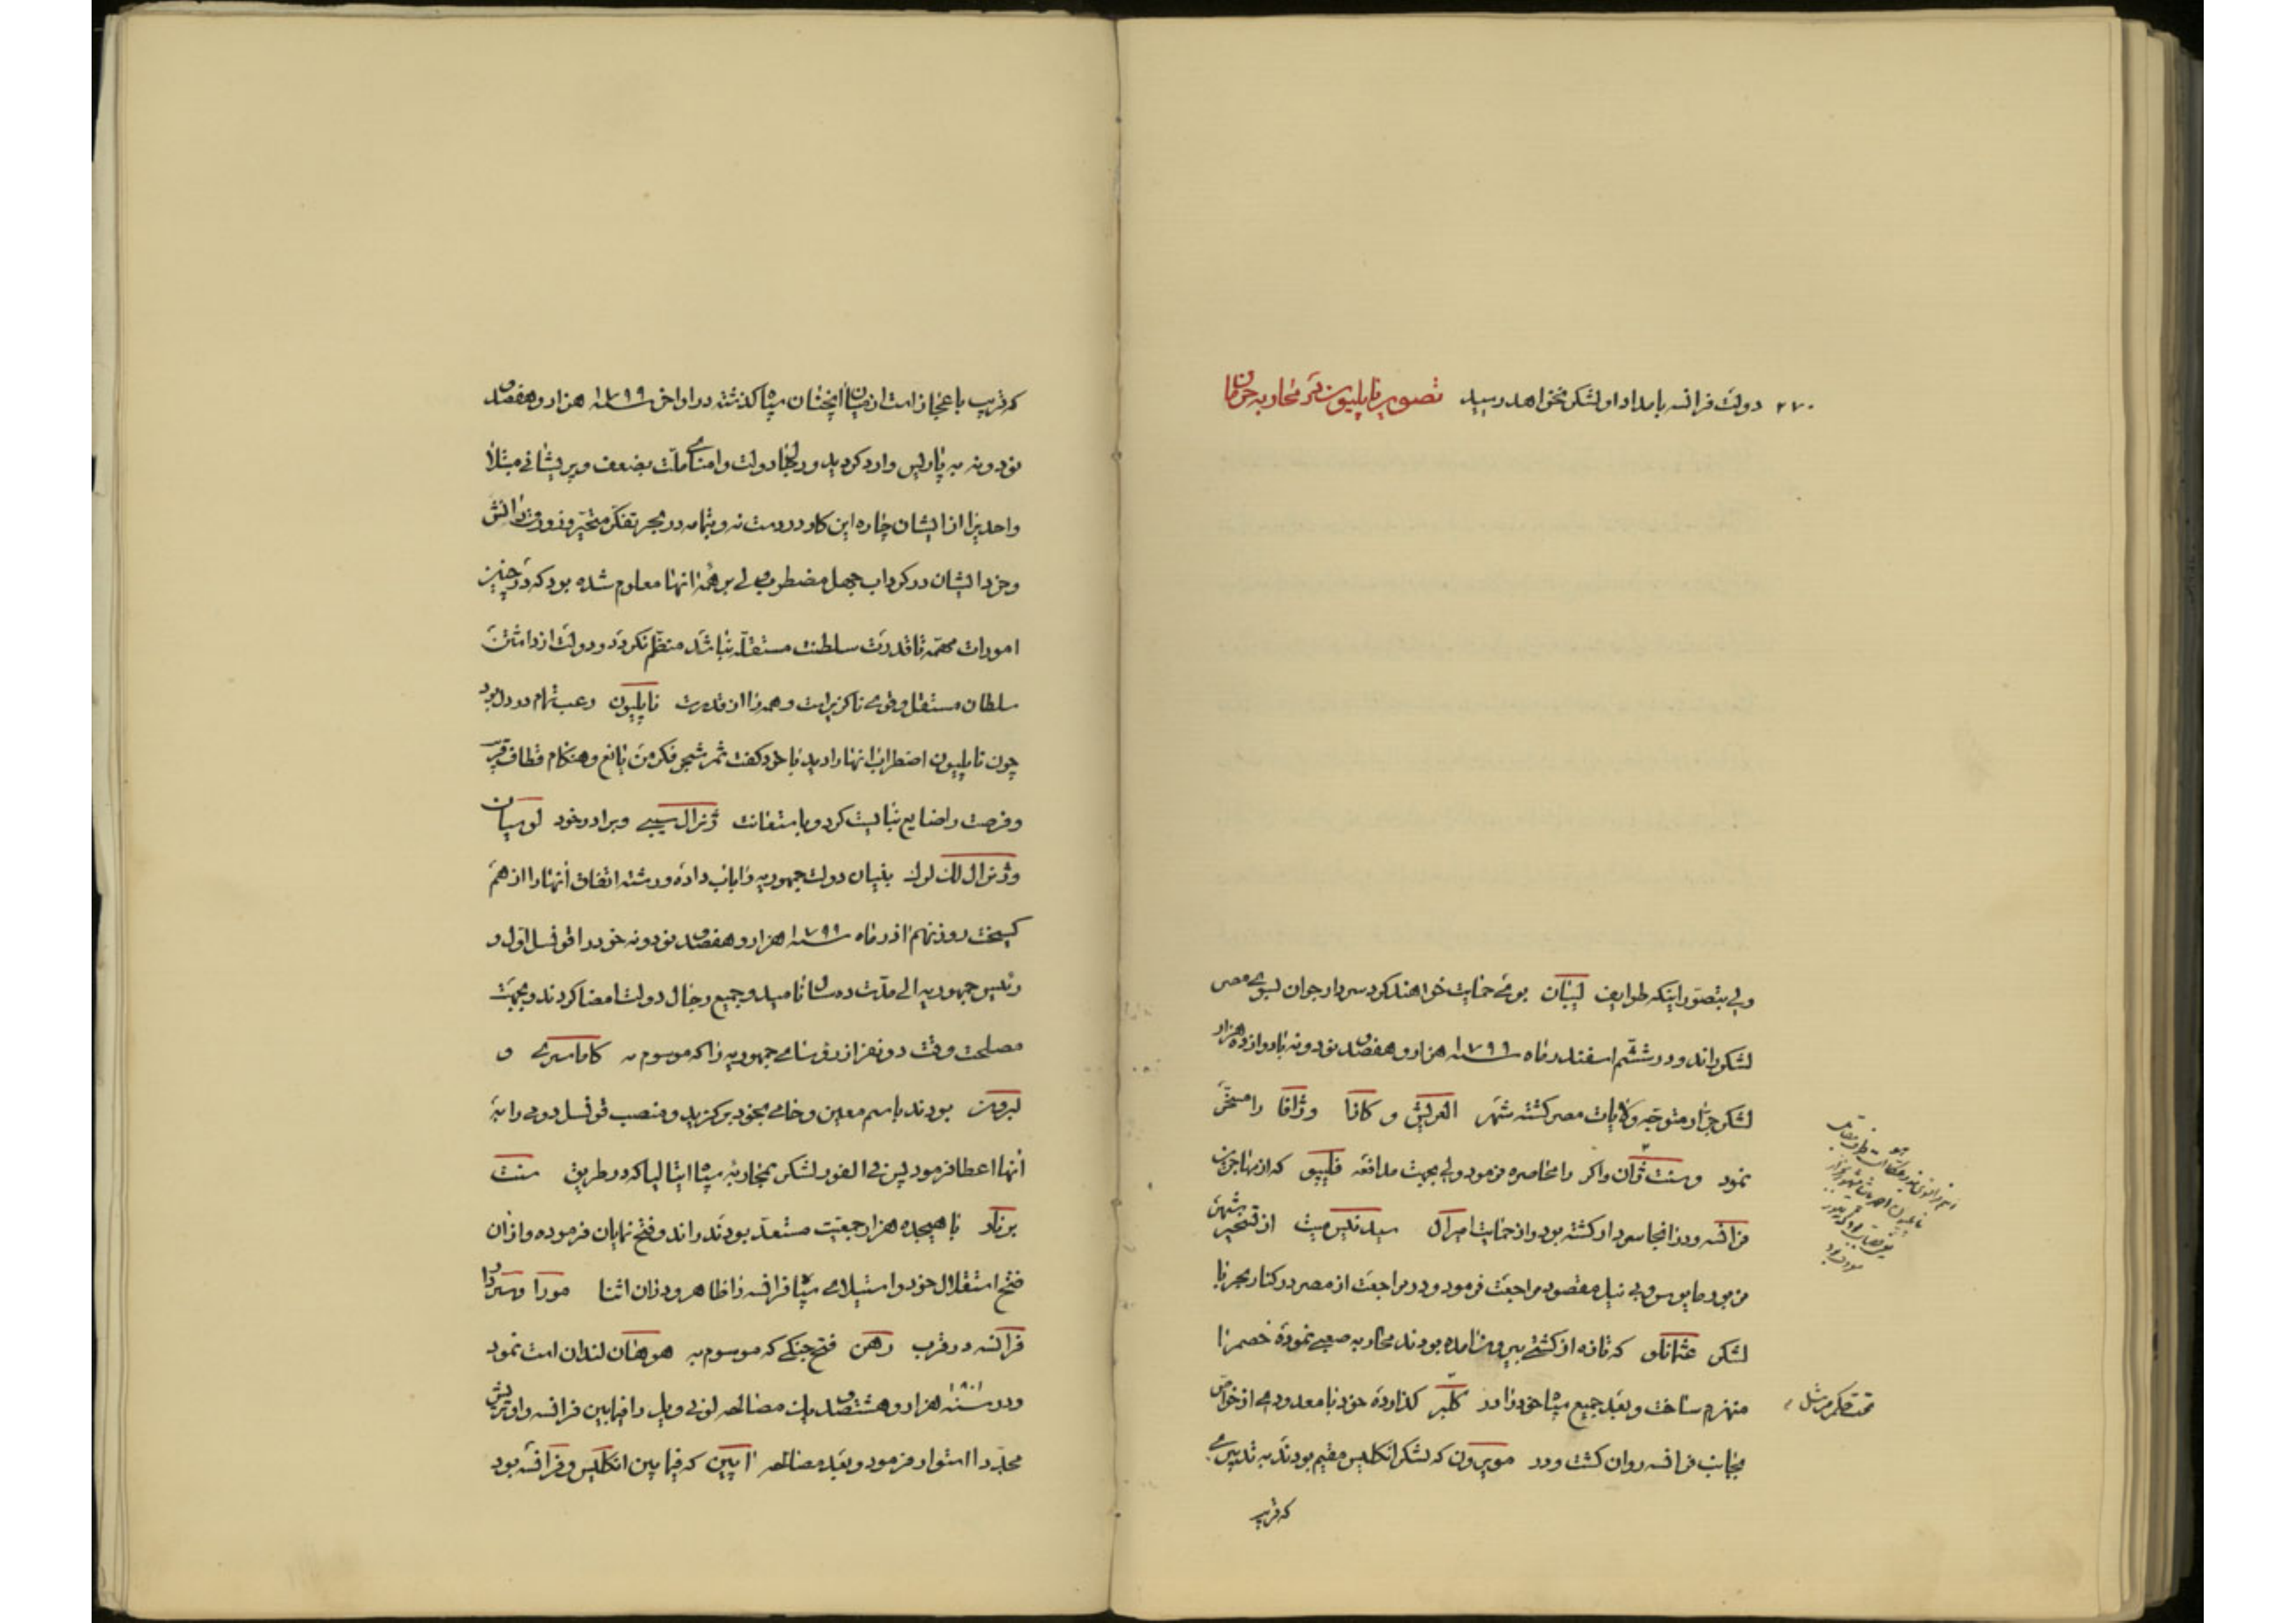 ۲۷۰ دولت فرانسه بامداد او لشکر نخواهد رسید تصویر ناپلیون در محاربه جرمان
ولی بتصور اینکه طوایف لیبنان بوی حمایت خواهند کرد سردار جوان بسوی مصر
لشکر راند و در ششم اسفندرماه سنه ۱۷۹۹ هزار و هفصد نود و نه با دوازده هزار
لشکر جرار متوجه ولایات مصر کشته شهر العریش و کازا و ژافا را مسخر
نمود و سنت ژان داکر را محاصره فرمود ولی بجهت مدافعه فلیپو که از مهاجرین
فرانسه و در انجا سردار کشته بود و از حمایت امیرال سیدنیس میث از تسخیر شهر
فرمود مایوس و بی نیل مقصود مراجعت فرمود و در مراجعت از مصر در کنار بحر با
لشکر عثمانلو که تازه از کشتی بیرون امده بودند محاربه صعبی نموده خصم را
منهزم ساخت و بعد جمیع سپاه خود را در کلبر کذارده خود با معدودی از خواص
بجانب فرانسه روان کشت و در مویرون که لشکر انکلیس مقیم بودند به تدبیری
که قریب
تحت حکم مرشل
که قریب باعجاز است از میان انچنان سپاه کذشته در اواخر سنه ۱۷۹۹ هزار و هفصد
نود و نه به پاریس وارد کردید و در انجا دولت و امنای ملت بضعف و پریشانی مبتلا
واحدیرا از ایشان چاره این کار در دست نه و بتمامه در بحر تفکر متحیر و زورق دانش
و خرد ایشان در کرداب جهل مضطرب ولی بر همه انها معلوم شده بود که در چنین
امورات مهمه تا قدرت سلطنت مستقله نباشد منظم نکردد و دولت از داشتن
سلطان مستقل وقوی ناکزیر است و همه را از قدرت ناپلیون رعب تمام در دل بود
چون ناپلیون اضطراب انها را دید با خود کفت ثمر شجر فکر من یانع و هنکام قطاف قریب
و فرصت را ضایع نبایست کرد و باستعانت ژنرال سییی و برادر خود لوسیان
و ژنرال لک لرک بنیان دولت جمهوریه را باب داده و رشته اتفاق انها را از هم
کسیخت روز نهم اذرماه سنه ۱۷۹۹ هزار و هفصد نود و نه خود را قونسل اول و
رئیس جمهوریه الی مدت ده سال نامید و جمیع رجال دولت امضا کردند و بجهت
مصلحت وقت دو نفر از رؤسای جمهوریه را که موسوم به کاماسری و
لبرون بودند باسم معین و حامی بخود برکزید و منصب قونسل دومی را به
انها اعطا فرمود پس فی الفور لشکر بمحاربه سپاه ایتالیا که در طریق سنت
برنار با هیجده هزار جمعیت مستعد بودند راند و فتح نمایان فرموده و از ان
فتح استقلال خود و استیلای سپاه فرانسه را ظاهر و در ان اثنا مورا سردار
فرانسه در قرب رهن فتح جنکی که موسوم به هوهنان لندان است نمود
و در سنه ۱۸۰۱ هزار و هشتصد یک مصالحه لونی ویل را فیمابین فرانسه و اوتریش
مجددا استوار فرمود و بعد مصالحه امیین که فیمابین انکلیس و فرانسه بود